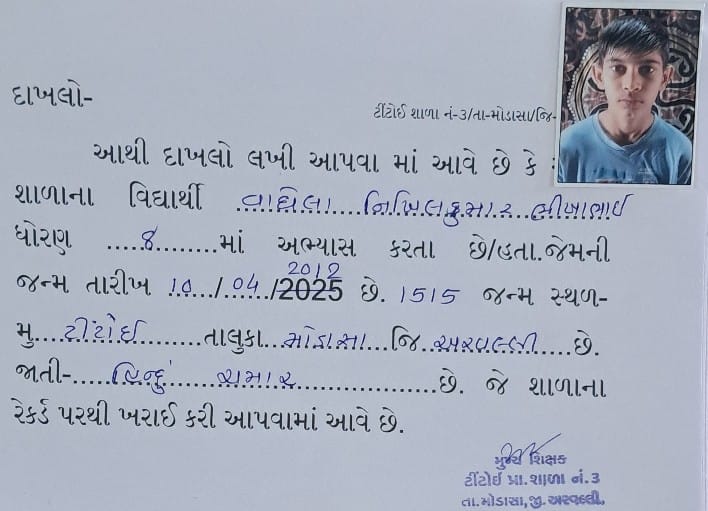 દાખલો-
ટીંટોઈ શાળા નં-૩/તા-મોડાસા/જિ-
આથી દાખલો લખી આપવા માં આવે છે કે
શાળાના વિદ્યાર્થી વાઘેલા નિખિલકુમાર ભીખાભાઈ
ધોરણ .....8........માં અભ્યાસ કરતા છે/હતા.જેમની
2012
જન્મ તારીખ 10/04/2025 છે. 1515 જન્મ સ્થળ-
મુ...ટીંટોઈ.......તાલુકા..મોડાસા...જિ..અરવલ્લી....છે.
જાતી-.....હિન્દુ ચમાર................છે. જે શાળાના
રેકર્ડ પરથી ખરાઈ કરી આપવામાં આવે છે.
મુખ્ય શિક્ષક
ટીંટોઈ પ્રા.શાળા નં.૩
તા.મોડાસા,જી.અરવલ્લી.